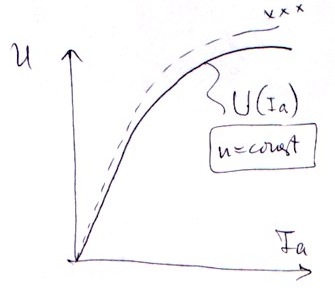 xxx
U
U(Ia)
n=const
Ia